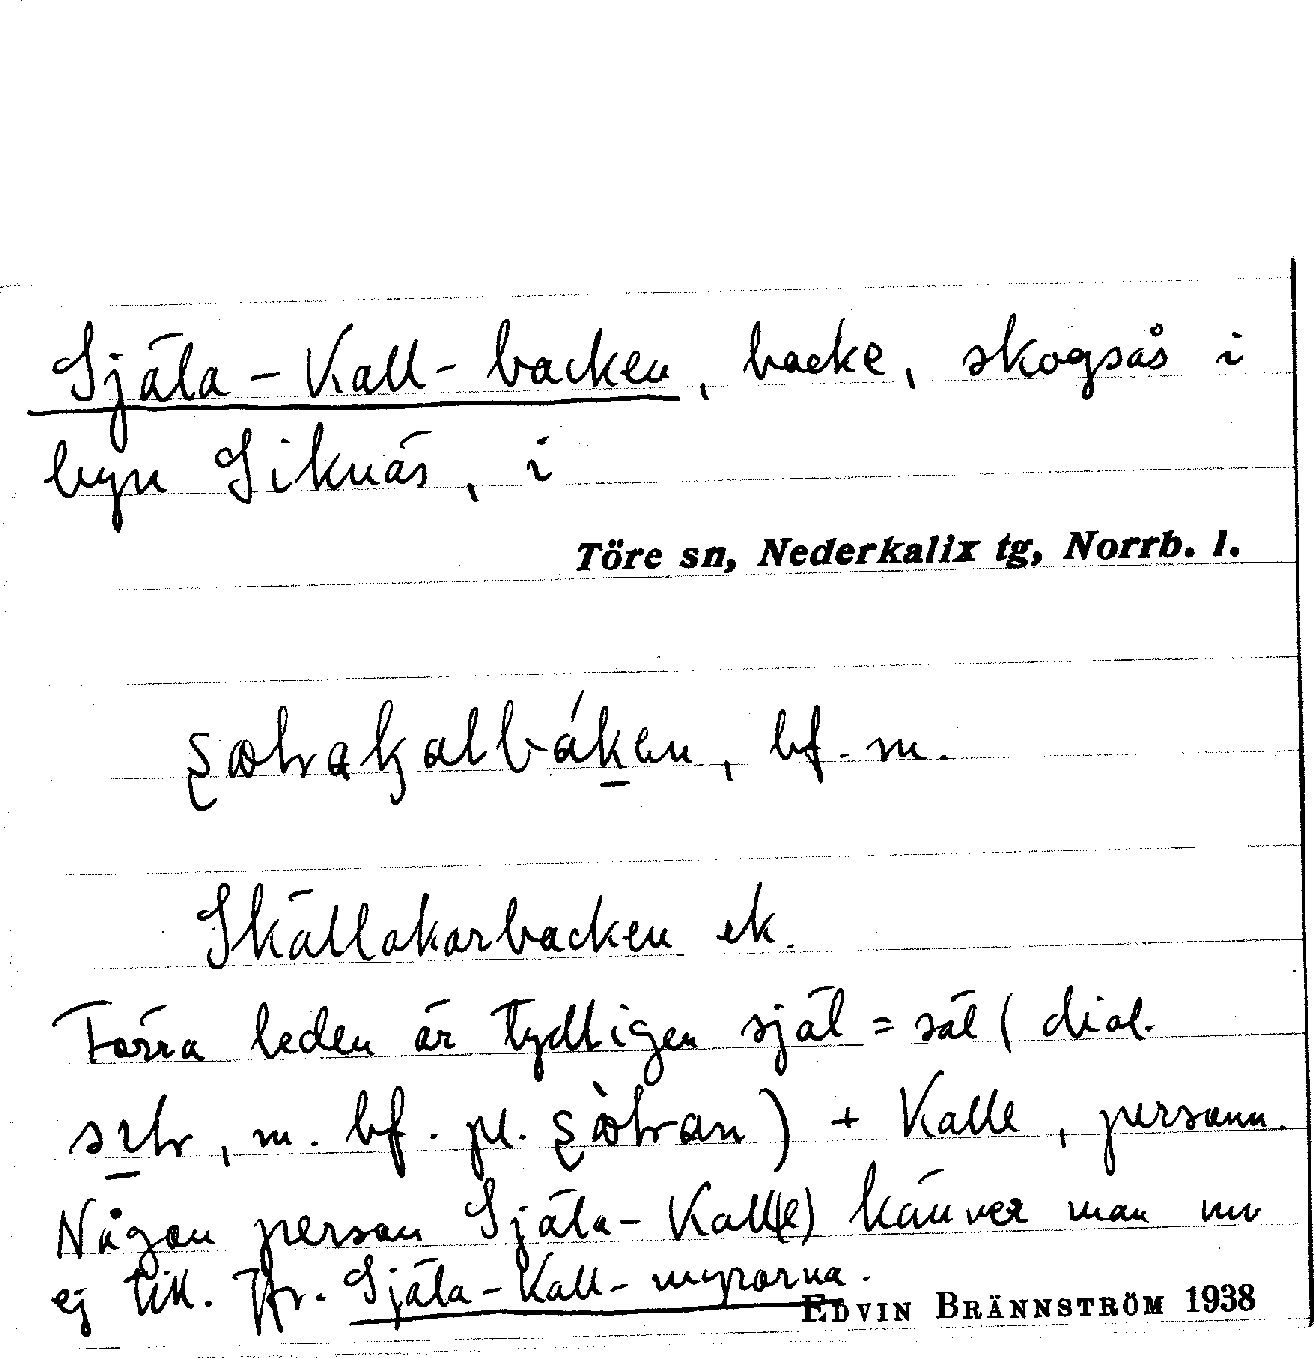 Själa-Kall-backen, backe, skogsås i
byn Siknäs, i
Töre sn, Nederkalix tg, Norrb. l.
bf. m.
Skällakarbacken ek.
Förra leden är tydligen själ = säl (dial.
m. bf. pl. ) + Kalle, personn.
Någon person Själa-Kall(e) känner man nu
ej till. Jfr. Själa-Kall-myrorna.
EDVIN BRÄNNSTRÖM 1938